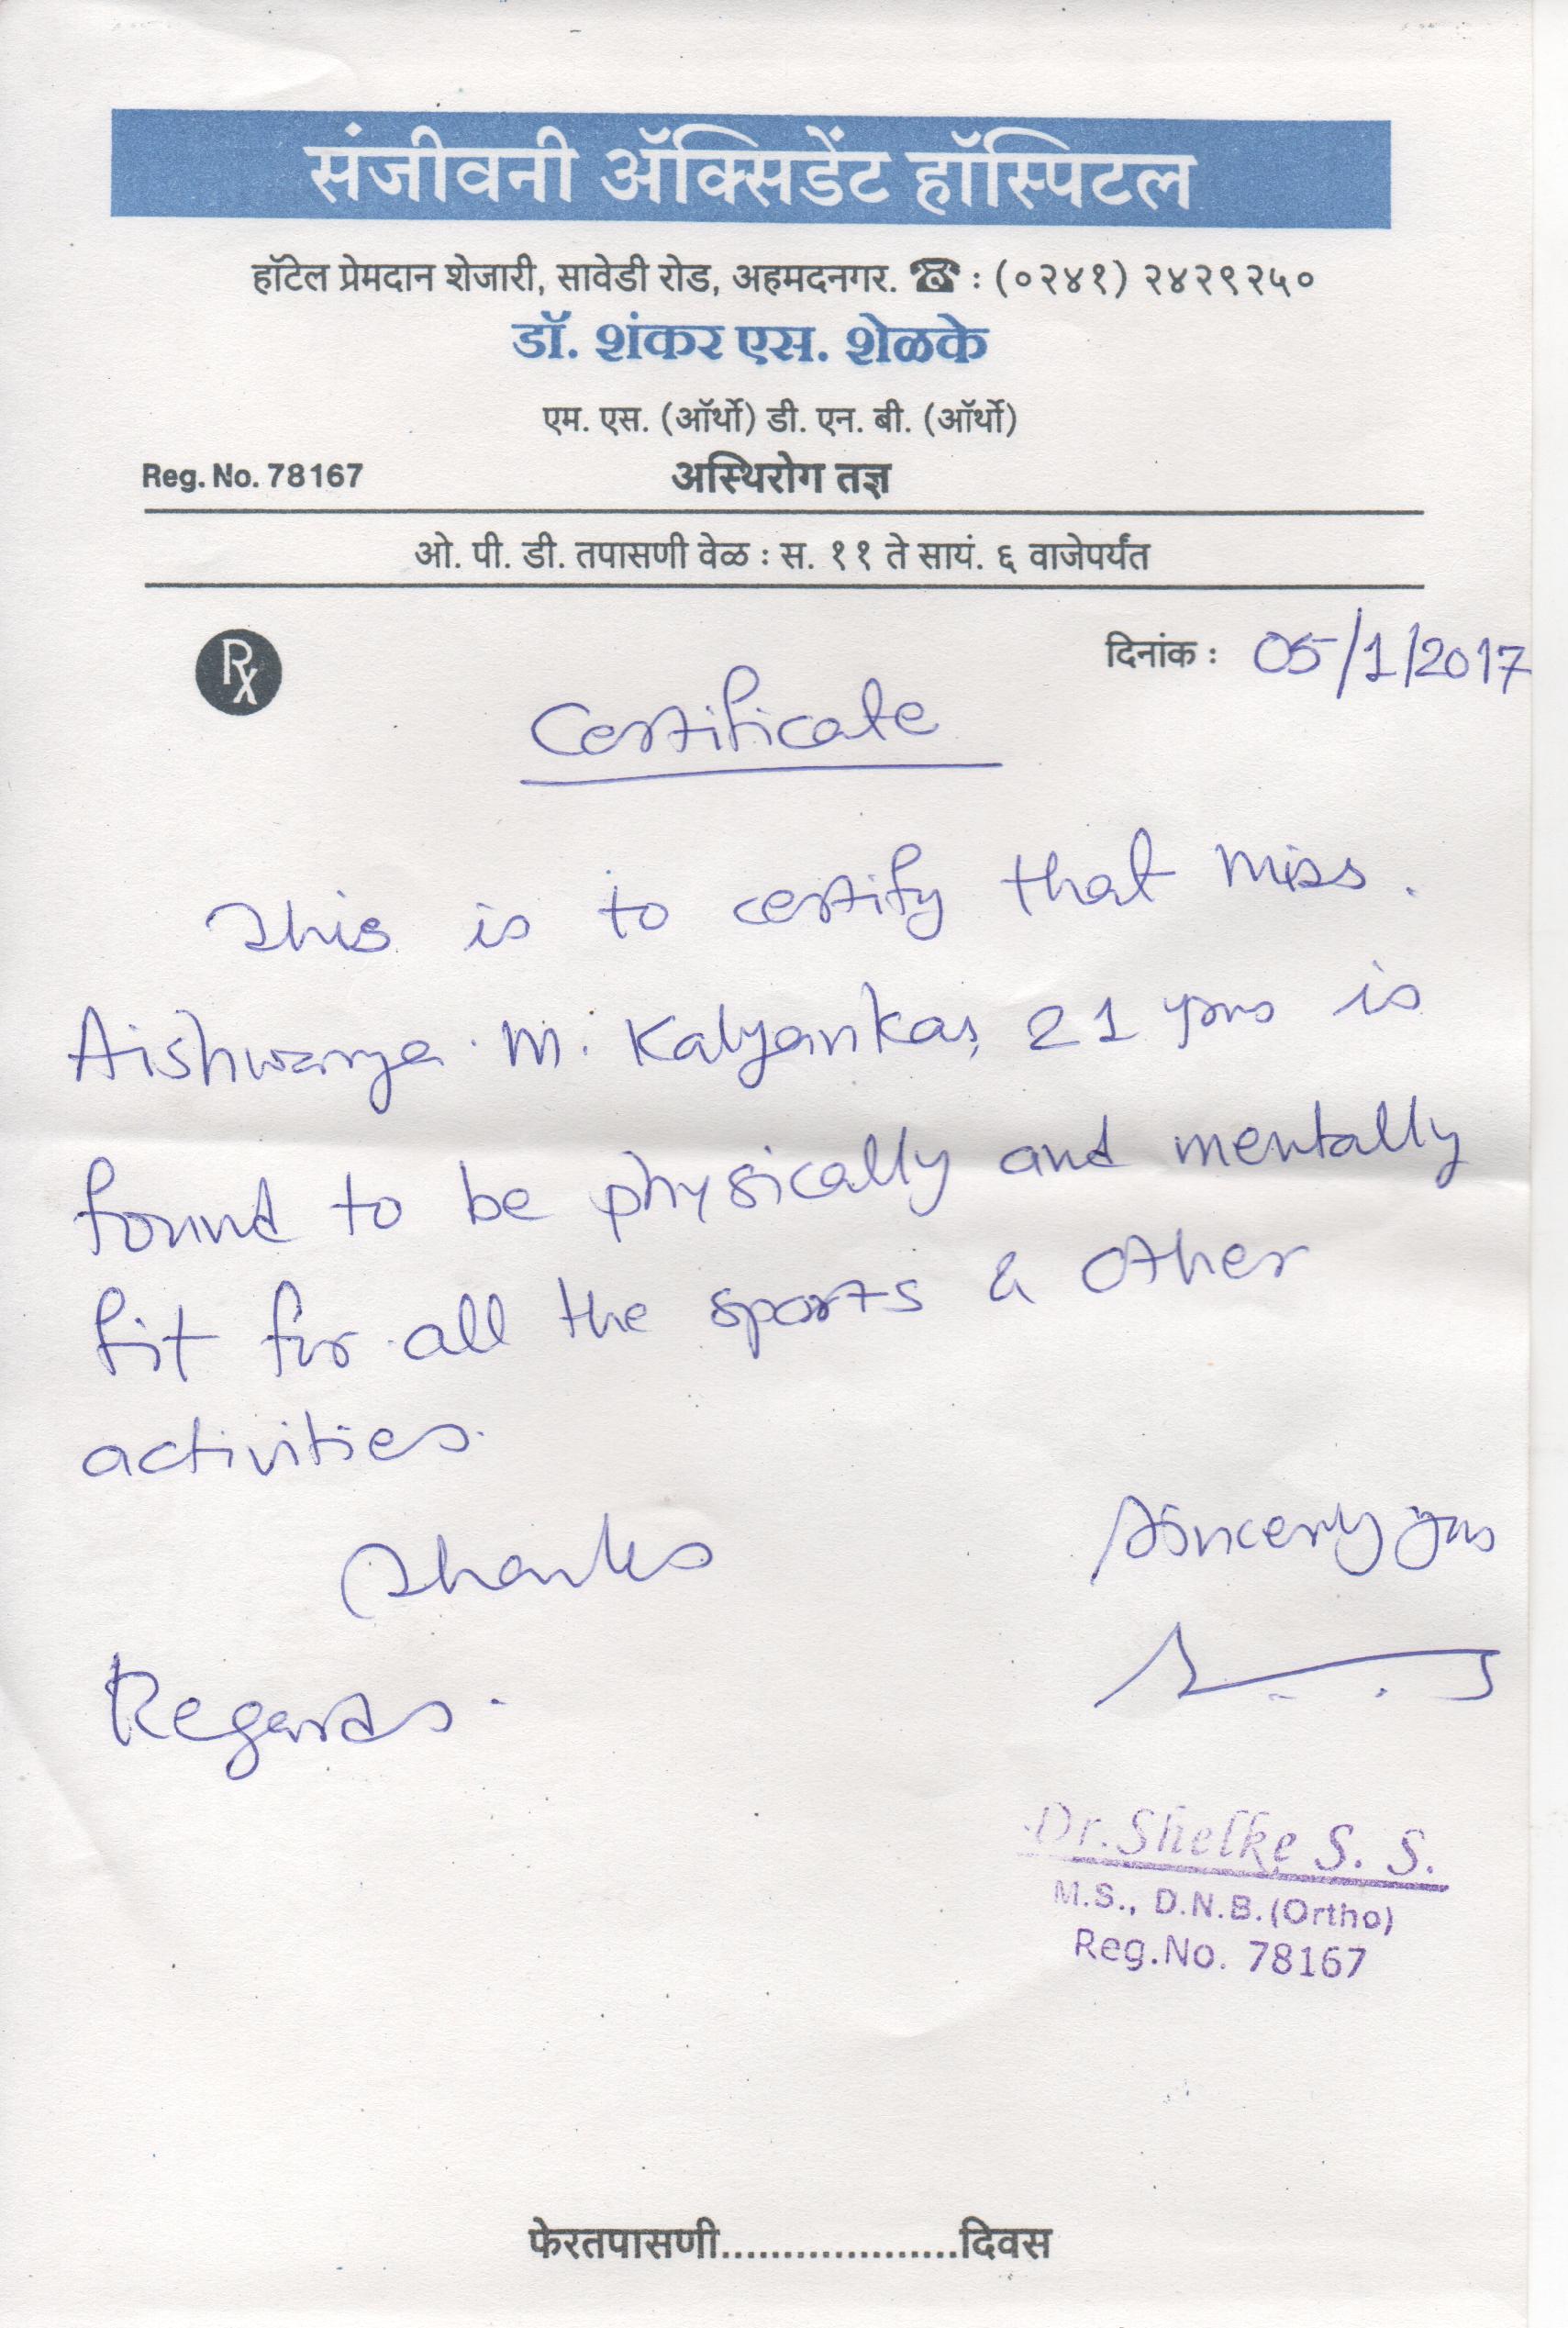 संजीवनी ॲक्सिडेंट हॉस्पिटल
हॉटेल प्रेमदान शेजारी, सावेडी रोड, अहमदनगर. ☎ : (०२४१) २४२९२५०
डॉ. शंकर एस. शेळके
एम. एस. (ऑर्थो) डी. एन. बी. (ऑर्थो)
Reg. No. 78167 अस्थिरोग तज्ञ
ओ. पी. डी. तपासणी वेळ : स. ११ ते सायं. ६ वाजेपर्यंत
Rx दिनांक : 05/1/2017
Certificate
This is to certify that Miss.
Aishwarya M. Kalyankar, 21 yrs is
found to be physically and mentally
fit for all the sports & other
activities.
Thanks
Sincerly yrs
Regards.
Dr. Shelke S. S.
M.S., D.N.B.(Ortho)
Reg.No. 78167
फेरतपासणी...................दिवस